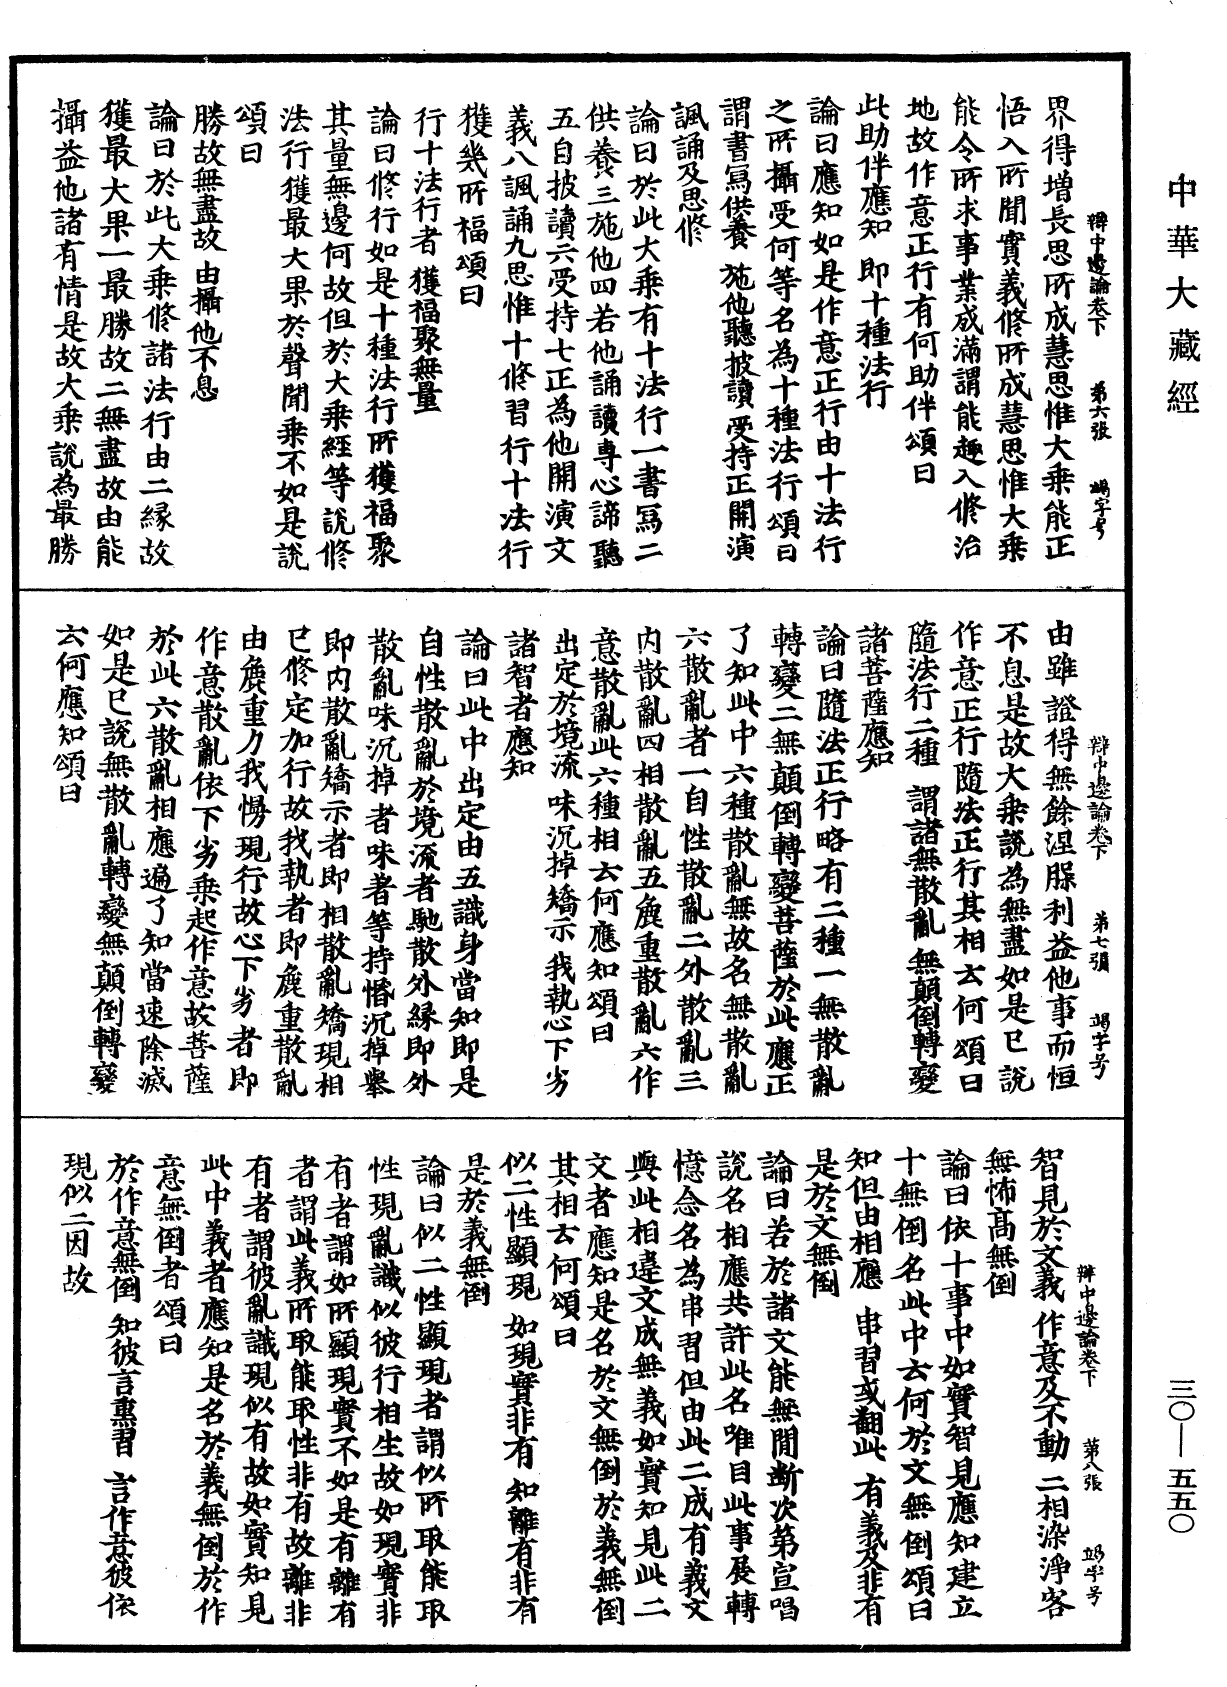 中華大藏經
辯中邊論卷下　第六張　竭字号
界得增長思所成慧思惟大乗能正
悟入所聞實義修所成慧思惟大乗
能令所求事業成滿謂能趣入修治
地故作意正行有何助伴頌曰
此助伴應知　即十種法行
論曰應知如是作意正行由十法行
之所攝受何等名為十種法行頌曰
謂書寫供養　施他聽披讀　受持正開演
諷誦及思修
論曰於此大乗有十法行一書寫二
供養三施他四若他誦讀專心諦聽
五自披讀六受持七正為他開演文
義八諷誦九思惟十修習行十法行
獲幾所福頌曰
行十法行者　獲福聚無量
論曰修行如是十種法行所獲福聚
其量無邊何故但於大乗經等說修
法行獲最大果於聲聞乗不如是說
頌曰
勝故無盡故　由攝他不息
論曰於此大乗修諸法行由二緣故
獲最大果一最勝故二無盡故由能
攝益他諸有情是故大乗說為最勝
辯中邊論卷下　第七張　竭字号
由雖證得無餘涅槃利益他事而恒
不息是故大乗說為無盡如是已說
作意正行隨法正行其相云何頌曰
隨法行二種　謂諸無散亂　無顛倒轉變
諸菩薩應知
論曰隨法正行略有二種一無散亂
轉變二無顛倒轉變菩薩於此應正
了知此中六種散亂無故名無散亂
六散亂者一自性散亂二外散亂三
内散亂四相散亂五麁重散亂六作
意散亂此六種相云何應知頌曰
出定於境流　味沉掉矯示　我執心下劣
諸智者應知
論曰此中出定由五識身當知即是
自性散亂於境流者馳散外緣即外
散亂味沉掉者味著等持惛沉掉舉
即内散亂矯示者即相散亂矯現相
已修定加行故我執者即麁重散亂
由麁重力我慢現行故心下劣者即
作意散亂依下劣乗起作意故菩薩
於此六散亂相應遍了知當速除滅
如是已說無散亂轉變無顛倒轉變
云何應知頌曰
辯中邊論卷下　第八張　竭字号
智見於文義　作意及不動　二相染淨客
無怖高無倒
論曰依十事中如實智見應知建立
十無倒名此中云何於文無倒頌曰
知但由相應　串習或翻此　有義及非有
是於文無倒
論曰若於諸文能無間斷次第宣唱
說名相應共許此名唯目此事展轉
憶念名為串習但由此二成有義文
與此相違文成無義如實知見此二
文者應知是名於文無倒於義無倒
其相云何頌曰
似二性顯現　如現實非有　知離有非有
是於義無倒
論曰似二性顯現者謂似所取能取
性現亂識似彼行相生故如現實非
有者謂如所顯現實不如是有離有
者謂此義所取能取性非有故離非
有者謂彼亂識現似有故如實知見
此中義者應知是名於義無倒於作
意無倒者頌曰
於作意無倒　知彼言熏習　言作意彼依
現似二因故
三〇—五五〇